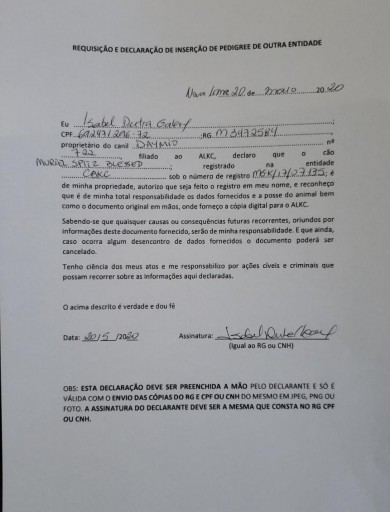 REQUISIÇÃO E DECLARAÇÃO DE INSERÇÃO DE PEDIGREE DE OUTRA ENTIDADE
Nova Lima 20 de maio 20 20
Eu Isabel Dutra
CPF RG M3472584
proprietário do canil DAYMIO nº
722, filiado ao ALKC, declaro que o cão
SPITZ BLESSED, registrado na entidade
CBKC sob o número de registro é
de minha propriedade, autorizo que seja feito o registro em meu nome, e reconheço
que é de minha total responsabilidade os dados fornecidos e a posse do animal bem
como o documento original em mãos, onde forneço a cópia digital para o ALKC.
Sabendo-se que quaisquer causas ou consequências futuras recorrentes, oriundos por
informações deste documento fornecido, serão de minha responsabilidade. E que ainda,
caso ocorra algum desencontro de dados fornecidos o documento poderá ser
cancelado.
Tenho ciência dos meus atos e me responsabilizo por ações cíveis e criminais que
possam recorrer sobre as informações aqui declaradas.
O acima descrito é verdade e dou fé
Data: 20/5 /2020 Assinatura:
(Igual ao RG ou CNH)
OBS: ESTA DECLARAÇÃO DEVE SER PREENCHIDA A MÃO PELO DECLARANTE E SÓ É
VÁLIDA COM O ENVIO DAS CÓPIAS DO RG E CPF OU CNH DO MESMO EM JPEG, PNG OU
FOTO. A ASSINATURA DO DECLARANTE DEVE SER A MESMA QUE CONSTA NO RG CPF
OU CNH.